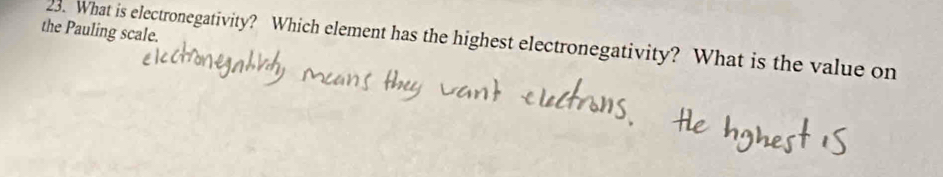 23. What is electronegativity? Which element has the highest electronegativity? What is the value on
the Pauling scale.
electronegativity means they want electrons. the highest is